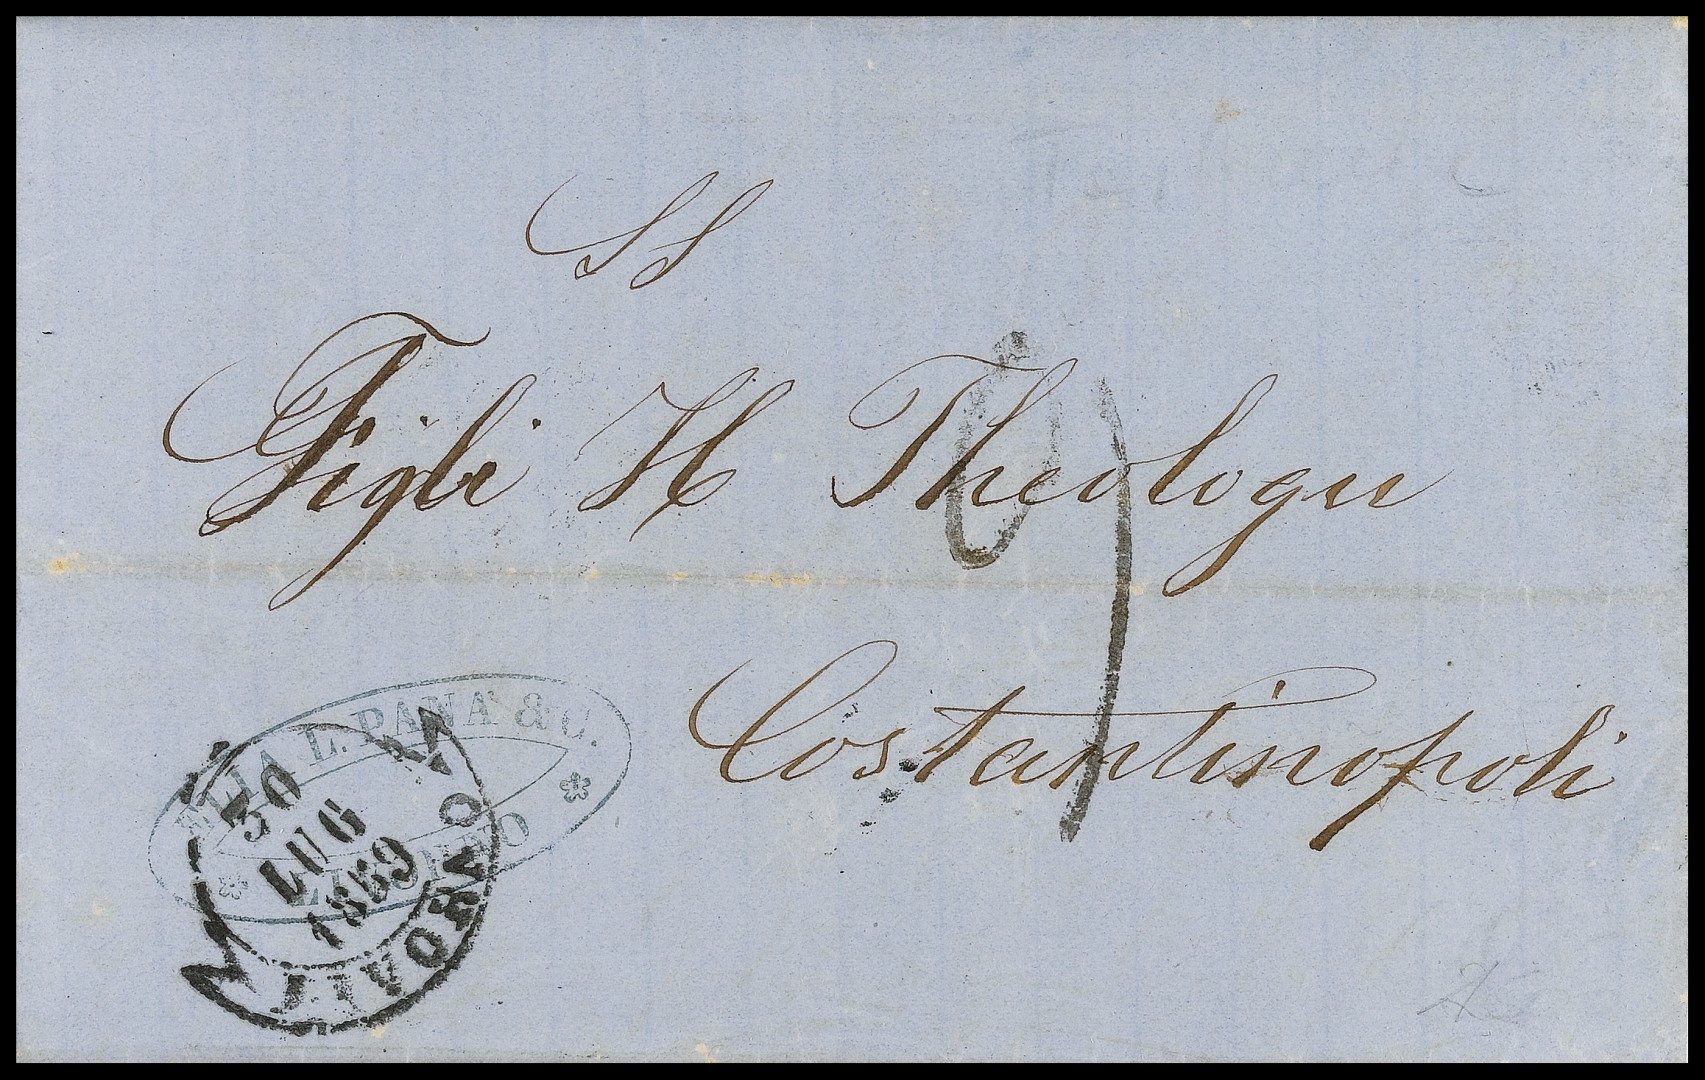 SS
Figli H Theologu
Costantinopoli
ELIA L. PANA & C.
LIVORNO
30
LUG
1859
LIVORNO